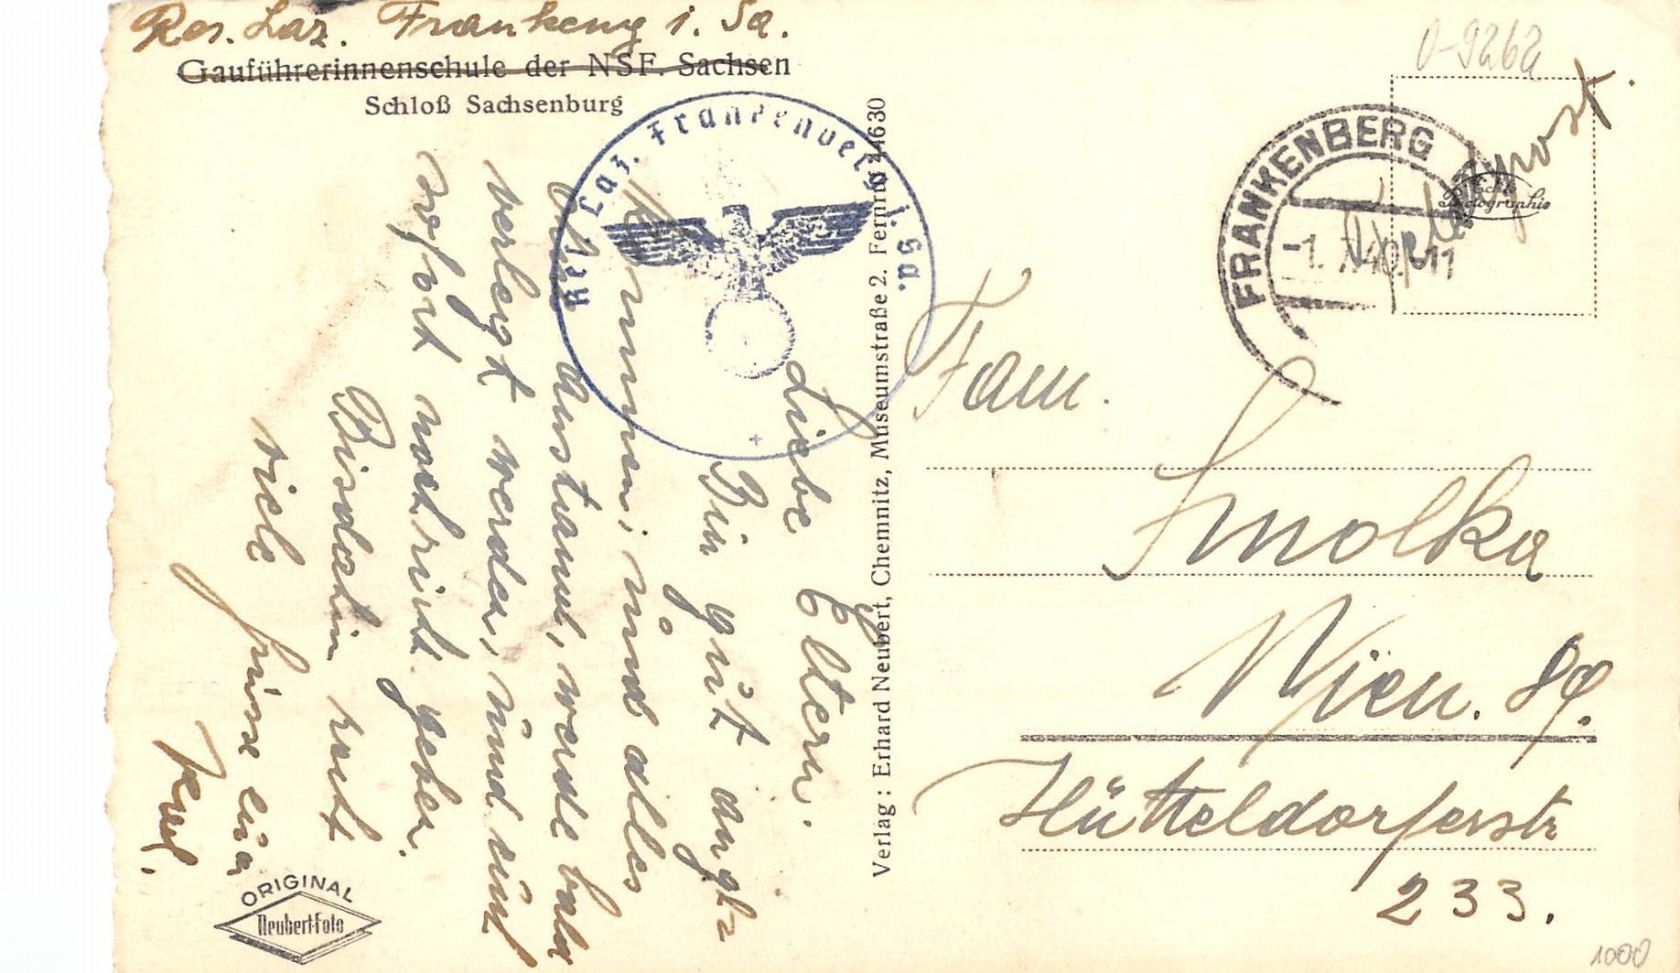 Res. Laz. Frankenbg i. Sa.
Gauführerinnenschule der NSF. Sachsen
Schloß Sachsenburg
Res. Laz. Frankenberg i. Sa.
Liebe Eltern.
Bin gut ange
kommen, und alles
werde bald
verlegt werden, und euch
sofort nachricht geben.
Bisdahin recht
viele Grüsse euer
Karl.
ORIGINAL
Neubert-Foto
Verlag: Erhard Neubert, Chemnitz, Museumstraße 2. Fernruf 24630
0-9262
Feldpost.
FRANKENBERG
-1. 7. 40. 11
Echte
Photographie
Fam.
Smolka
Wien. 89.
Hütteldorferstr
233.
1000